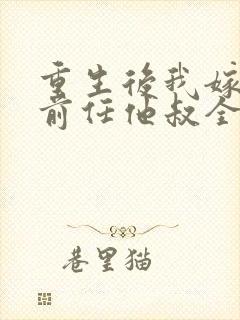 重生後我嫁
前任他叔全
巷里猫